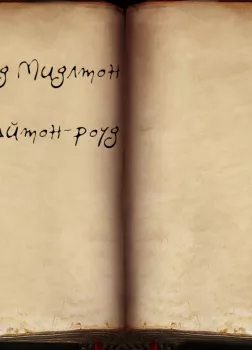 д Мидлтон
йтон-роуд